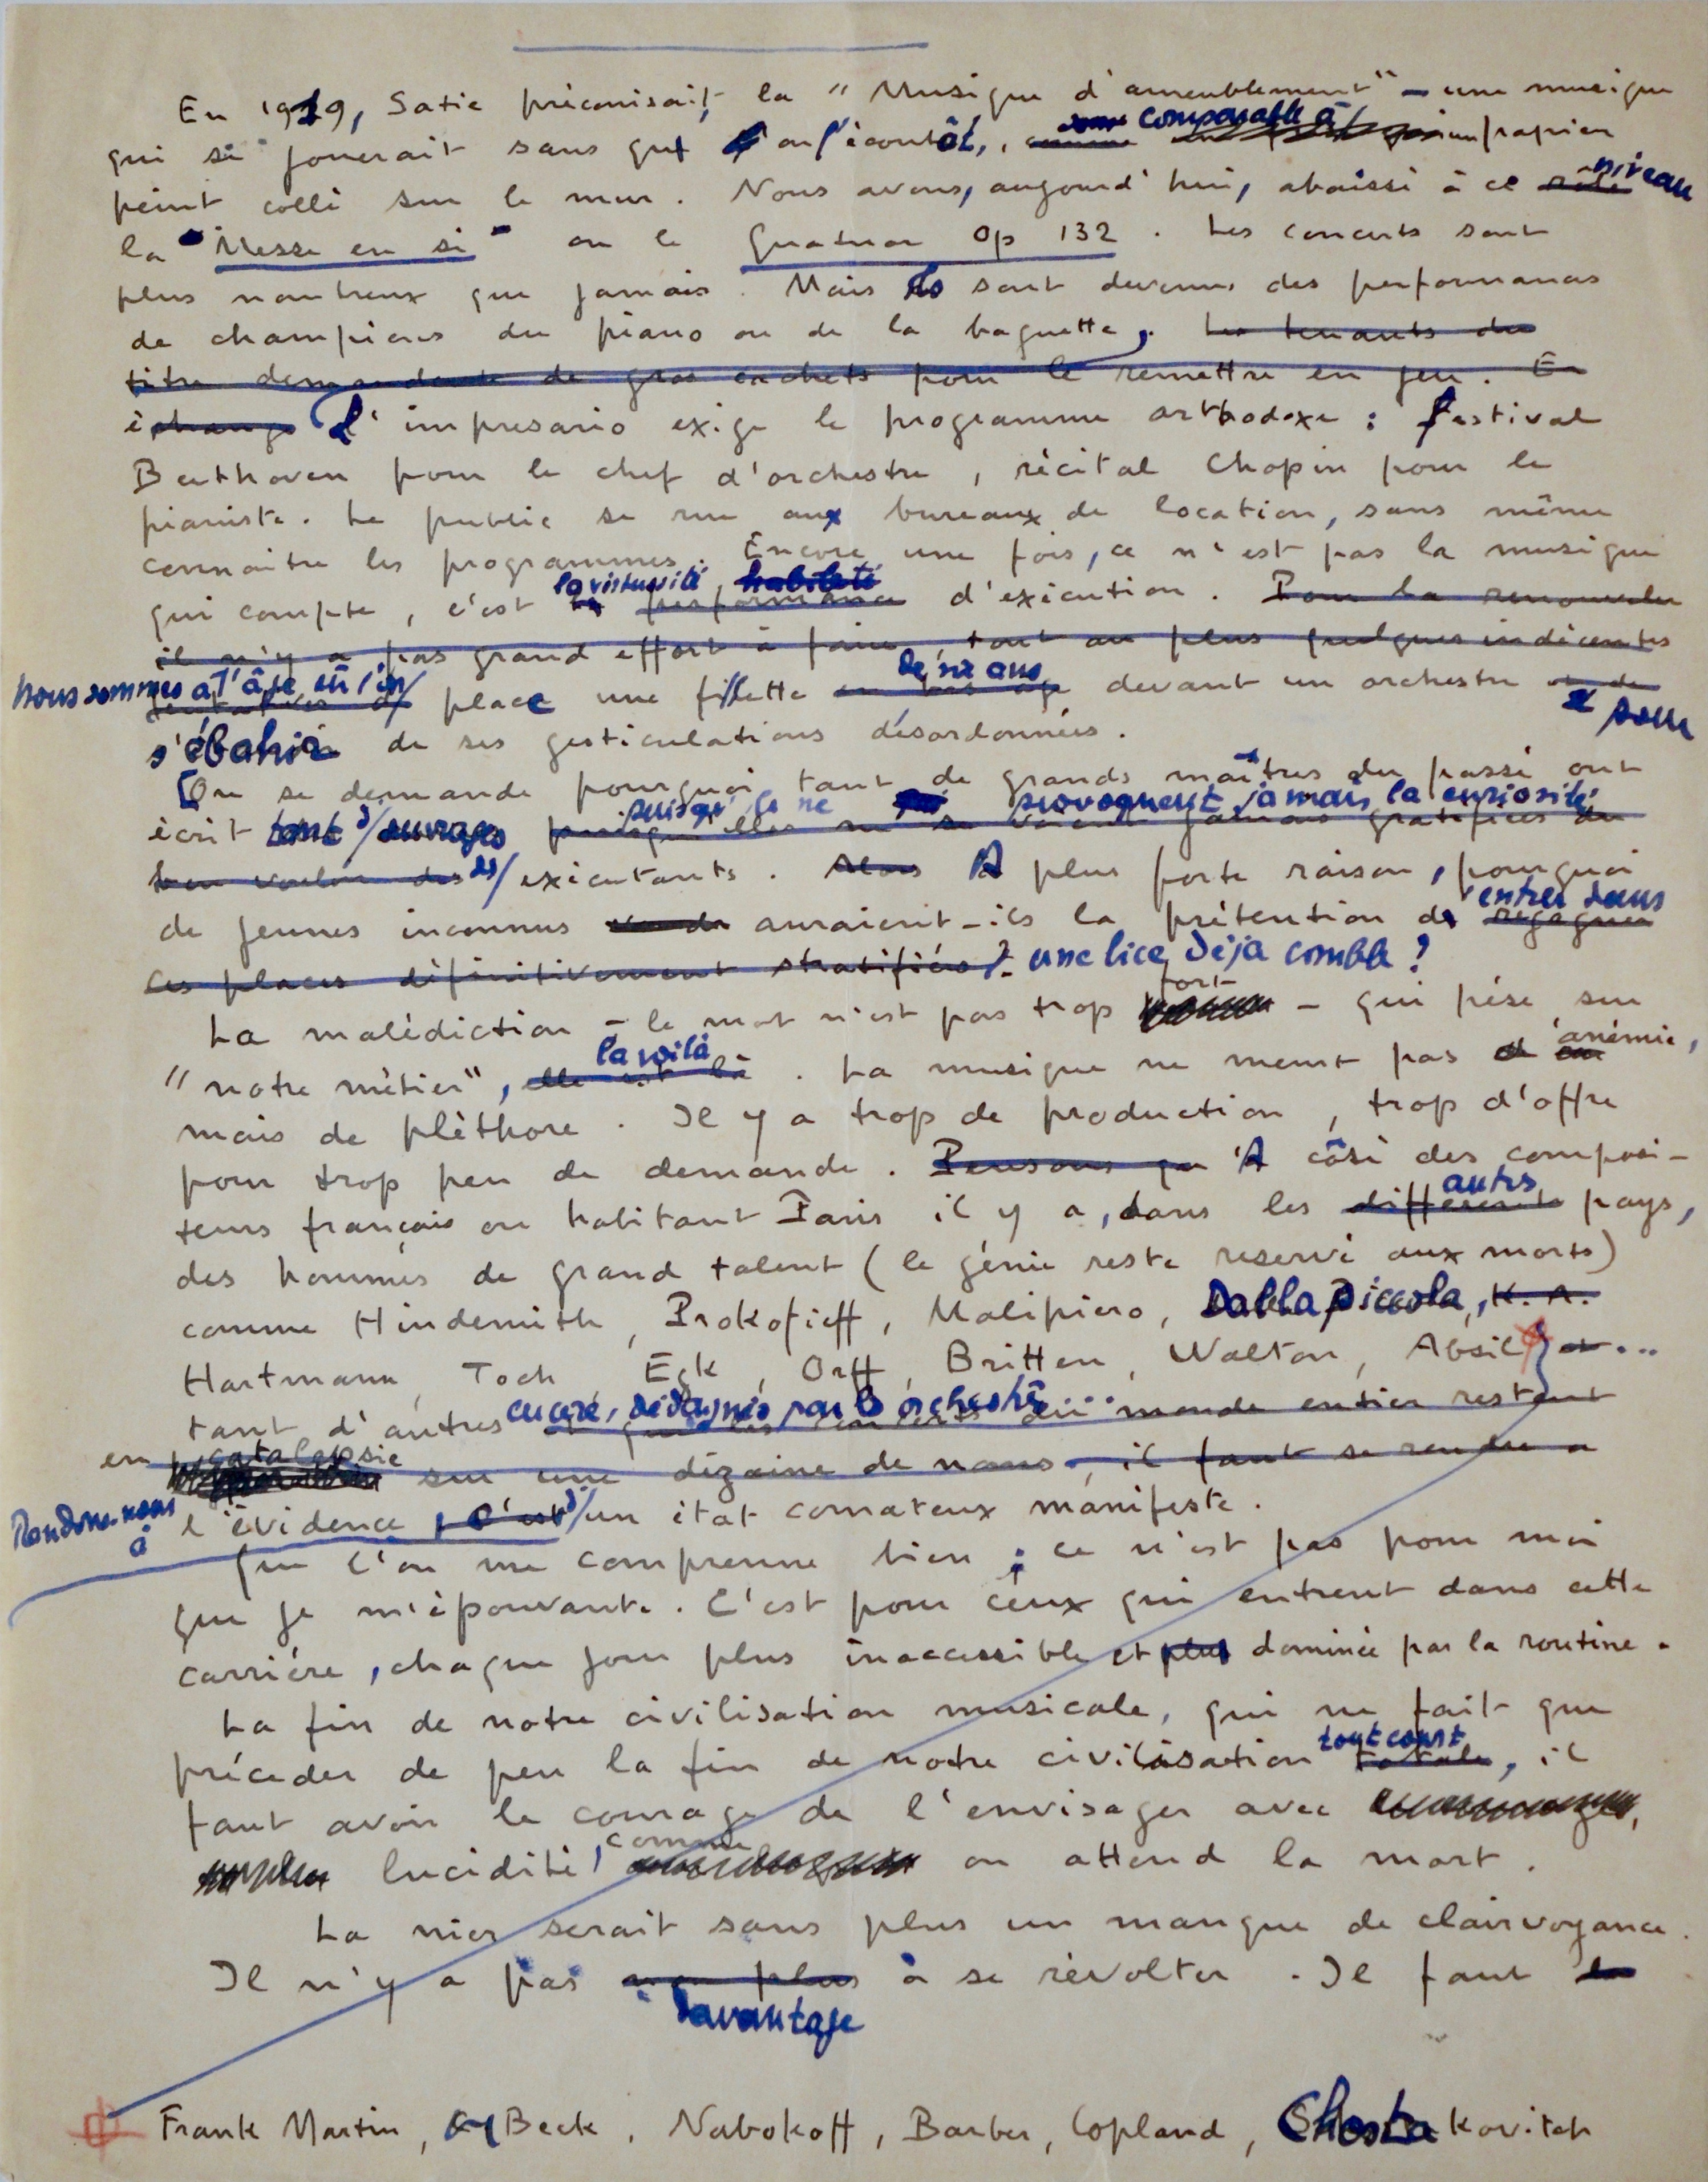 En 1919, Satie préconisait la "Musique d'ameublement" – une musique
comparable à
qui se jouerait sans que l'on l'écoutât, comme un papier
niveau
peint collé sur le mur. Nous avons, aujourd'hui, abaissé à ce rôle
la "Messe en si" ou le Quatuor Op 132. Les concerts sont
plus nombreux que jamais. Mais ils sont devenus des performances
de champions du piano ou de la baguette. Les tenants du
titre demandent de gros cachets pour le remettre en jeu. En
échange L'impresario exige le programme orthodoxe : festival
Beethoven pour le chef d'orchestre, récital Chopin pour le
pianiste. Le public se rue aux bureaux de location, sans même
connaitre les programmes. Encore une fois, ce n'est pas la musique
la virtuosité habileté
qui compte, c'est la performance d'exécution. Pour la renouveler
il n'y a pas grand effort à faire, tout au plus quelques indécentes
nous sommes à l'âge où l'on de dix ans
tentatives place une fillette en bas âge devant un orchestre et de
pour
s'ébahir de ses gesticulations désordonnées.
On se demande pourquoi tant de grands maîtres du passé ont
puisqu' ne provoquent jamais la curiosité
écrit tant d'ouvrages puisqu'elles ne se voient jamais gratifiées du
bon vouloir des des exécutants. Alors A plus forte raison, pourquoi
entrer dans
de jeunes inconnus auraient-ils la prétention de regagner
ces places définitivement stratifiées ? une lice déjà comble ?
fort
La malédiction – le mot n'est pas trop – qui pèse sur
la voilà anémie,
"notre métier", elle est là. La musique ne meurt pas d'
mais de pléthore. Il y a trop de production, trop d'offre
pour trop peu de demande. Pensons que A côté des composi-
autres
teurs français ou habitant Paris il y a, dans les différents pays,
des hommes de grand talent (le génie reste reservé aux morts)
comme Hindemith, Prokofieff, Malipiero, Dallapiccola, K. A.
Hartmann, Toch, Egk, Orff, Britten, Walton, Absil et ...
encore, dédaignés par les orchestres...
tant d'autres et que les concerts du monde entier restent
en catalepsie
sur une dizaine de noms, il faut se rendre à
Rendons-nous
à
l'évidence, c'est d'un état comateux manifeste.
Que l'on me comprenne bien : ce n'est pas pour moi
que je m'épouvante. C'est pour ceux qui entrent dans cette
carrière, chaque jour plus inaccessible et plus dominée par la routine.
La fin de notre civilisation musicale, qui ne fait que
tout court
précéder de peu la fin de notre civilisation totale, il
faut avoir le courage de l'envisager avec
comme
lucidité, on attend la mort.
La nier serait sans plus un manque de clairvoyance.
Il n'y a pas non plus à se révolter. Il faut
davantage
Frank Martin, C Beck, Nabokoff, Barber, Copland, Chostakovitch